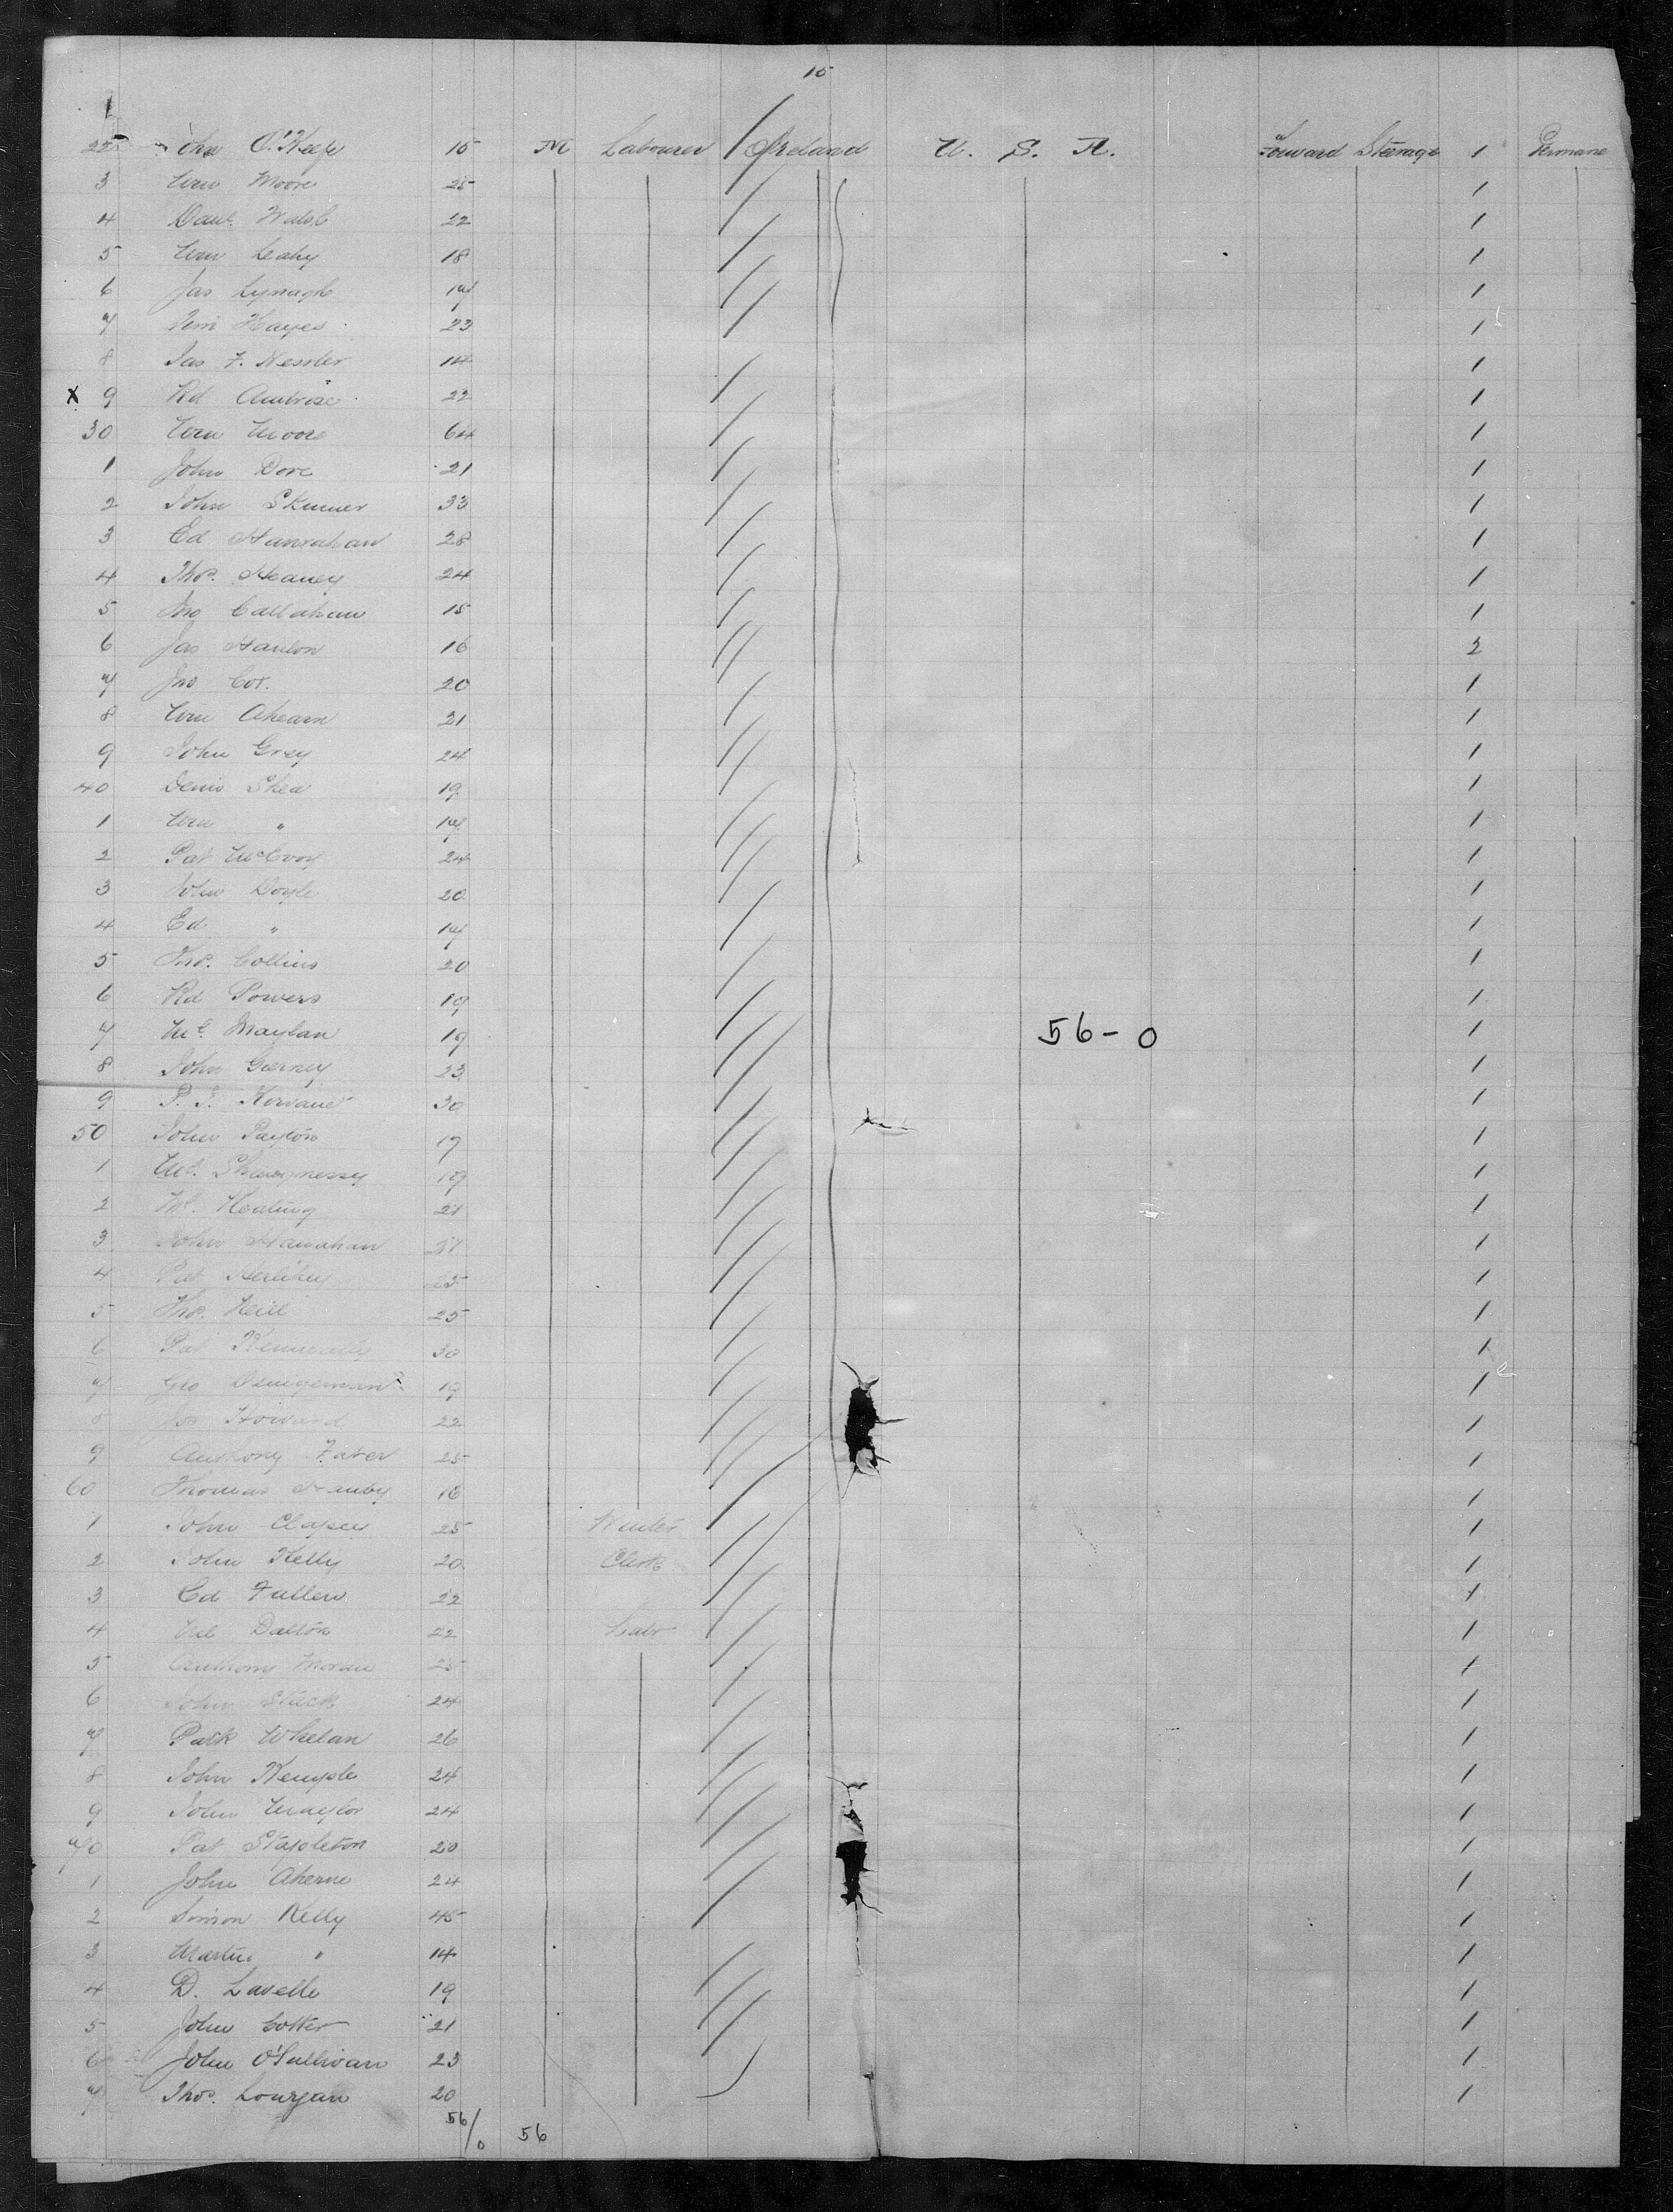 15
22 John O'Keefe 15 M Labourer Ireland U. S. A. Forward Steerage 1 Permane
3 Wm Moore 25 1
4 Danl. Walsh 22 1
5 Wm Leahy 18 1
6 Jas Lynagh 17 1
7 Tim Hayes 23 1
8 Jas F. Nessler 14 1
X 9 Rd Ambrose 22 1
30 Wm Moore 64 1
1 John Dore 21 1
2 John Skinner 33 1
3 Ed Hanrahan 28 1
4 Thos. Heaney 24 1
5 Jno Callahan 18 1
6 Jas Hanlon 16 2
7 Jno Cox. 20 1
8 Wm Ahearn 21 1
9 John Grey 24 1
40 Denis Shea 19 1
1 Wm " 17 1
2 Pat McEvoy 24 1
3 John Doyle 20 1
4 Ed " 17 1
5 Thos. Collins 20 1
6 Rd Powers 19 1
7 Ml. Maylan 19 56-0 1
8 John Gierney 23 1
9 P. J. Kirwane 30 1
50 John Payton 17 1
1 Ml. Shaugnessy 19 1
2 Ml. Keating 21 1
3 John Hanahan 21 1
4 Pat Herlihey 25 1
5 Thos. Neill 25 1
6 Pat Kenneally 30 1
7 Geo 19 1
8 Jos Howard 22 1
9 Anthony 25 1
60 Thomas Hanby 18 1
1 John Clapey 25 1
2 John Kelly 20 Clerk 1
3 Ed Fallen 22 1
4 Dalton 22 Labr 1
5 Anthony Moran 25 1
6 John Stack 24 1
7 Patk Whelan 26 1
8 John Kemple 24 1
9 John Maylor 24 1
70 Pat Stapleton 20 1
1 John Aherne 24 1
2 Simon Kelly 45 1
3 Martin " 14 1
4 D. Lavelle 19 1
5 John Cotter 21 1
6 John O'Sullivan 23 1
7 Thos. Lourgan 20 1
56/0 56